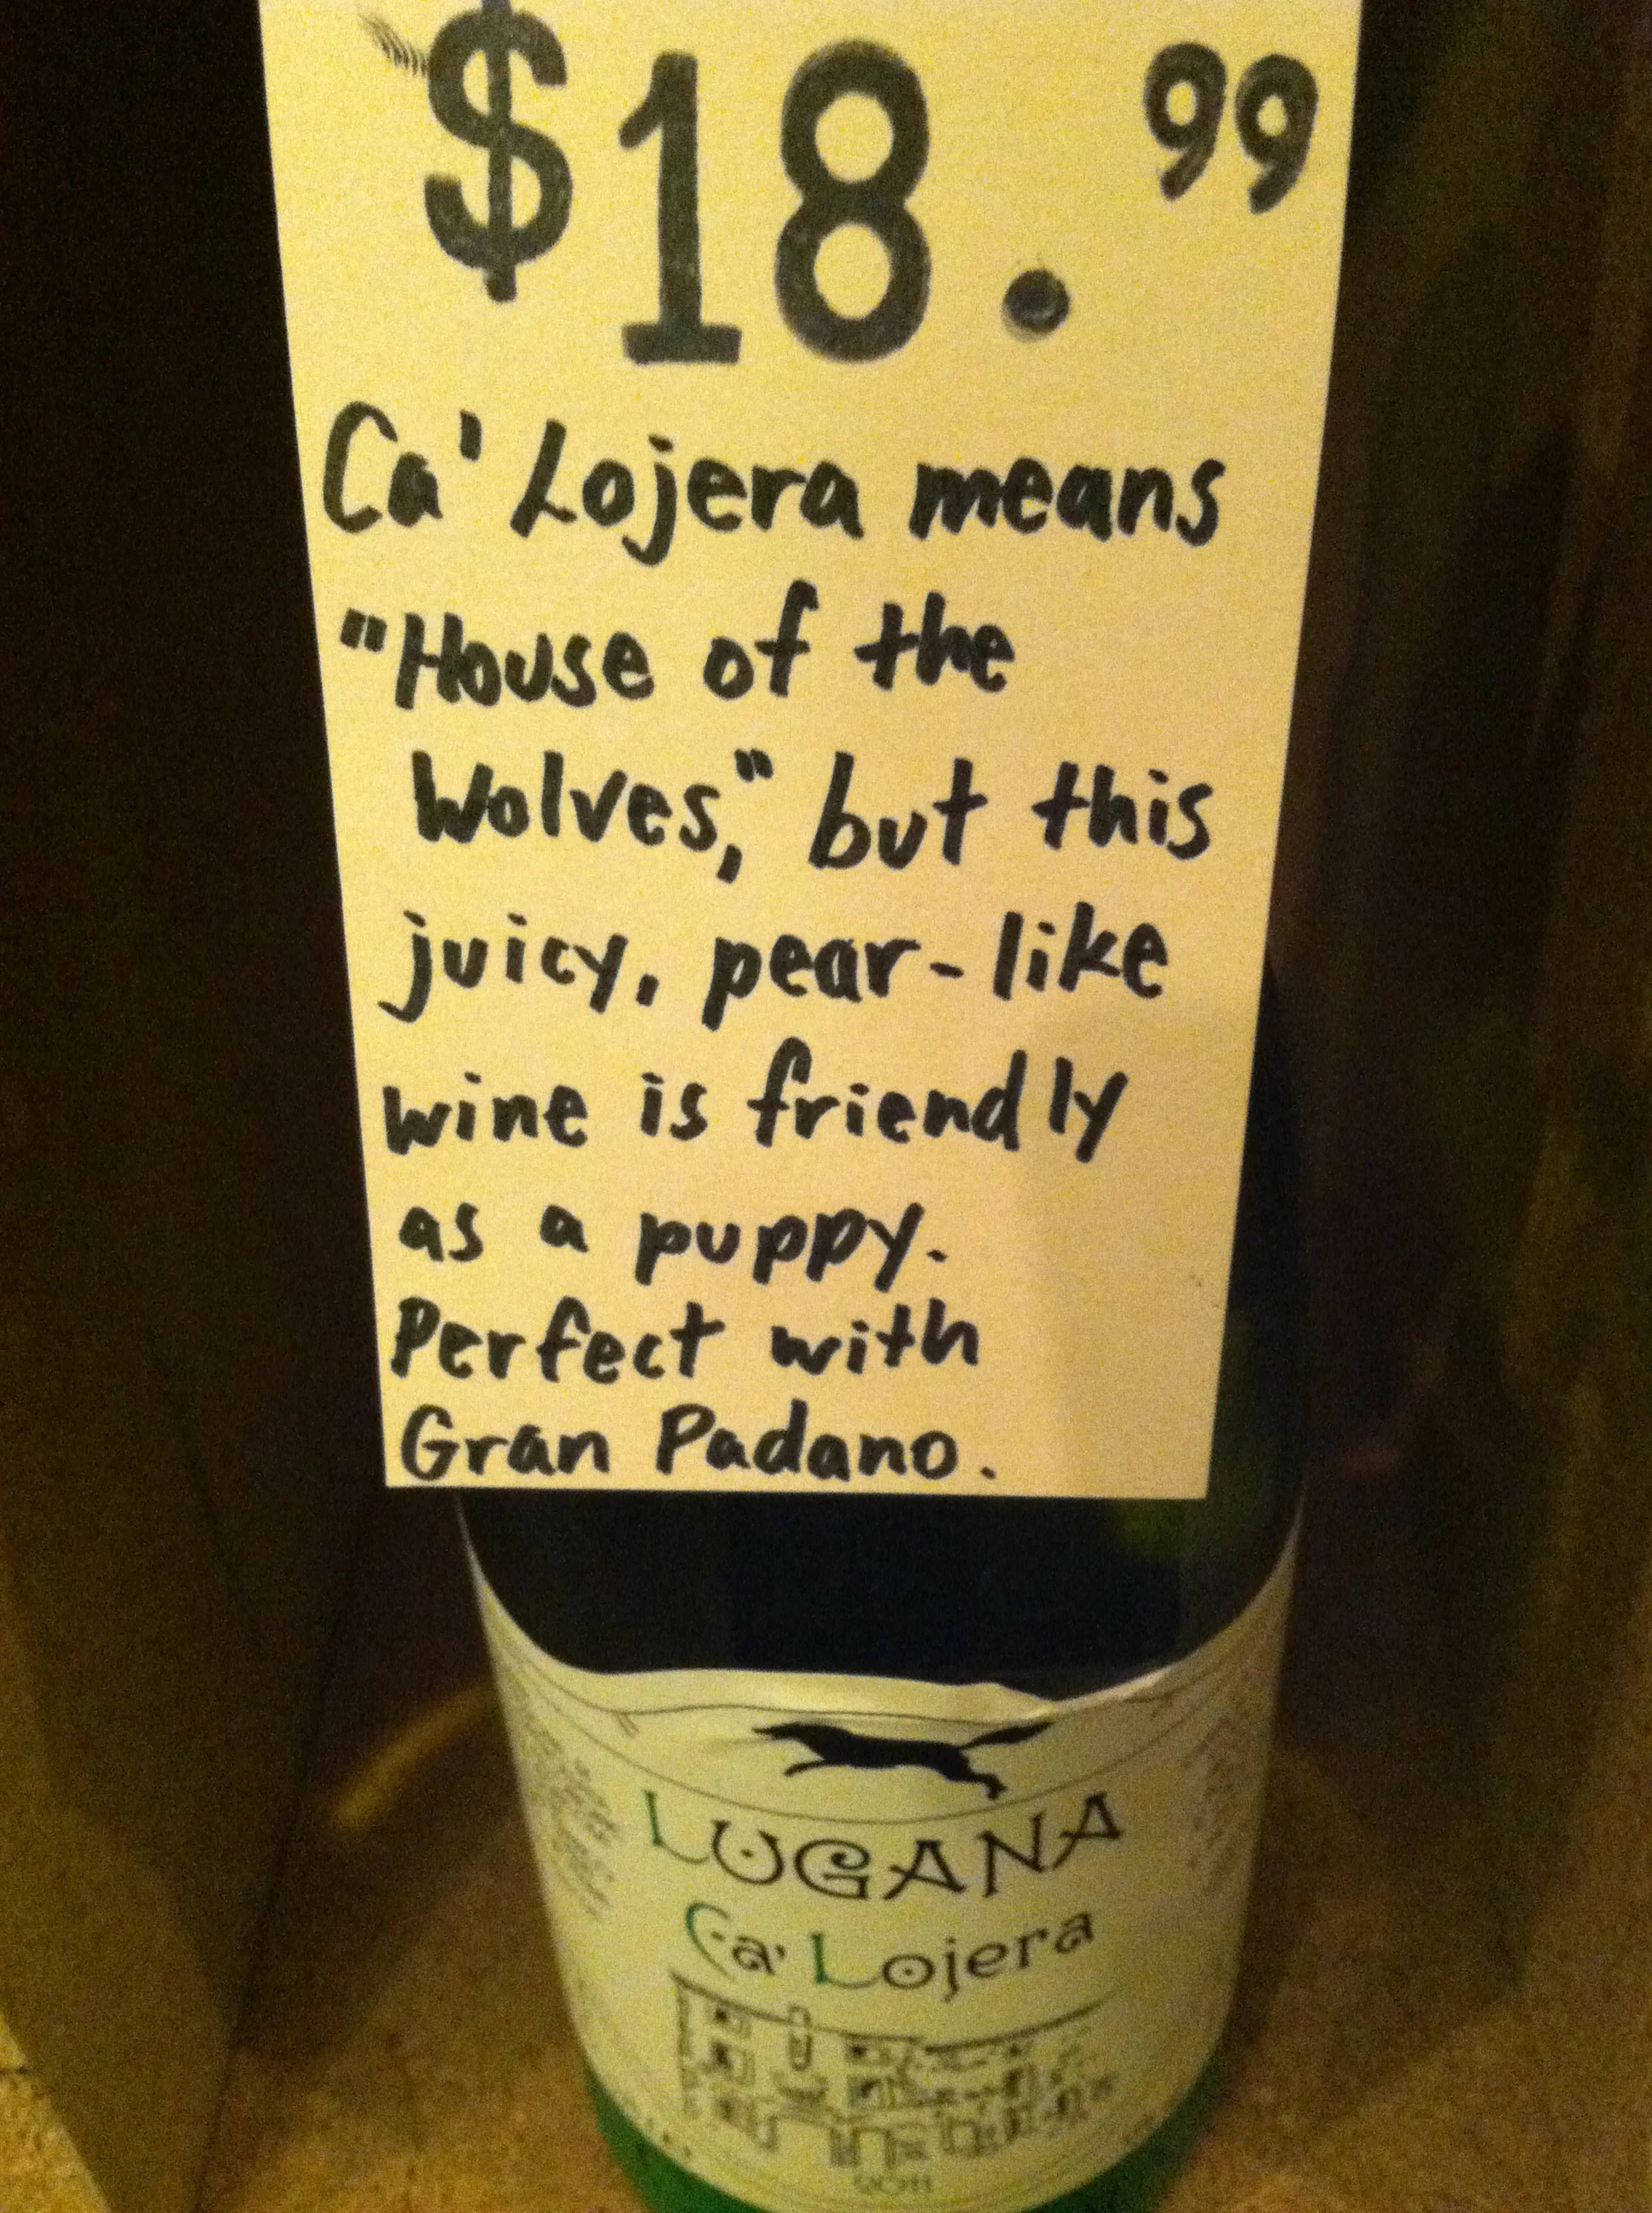 $18.99
Ca' Lojera means
"House of the
Wolves," but this
juicy, pear-like
wine is friendly
as a puppy.
Perfect with
Gran Padano.
LUGANA
Ca' Lojera
2011